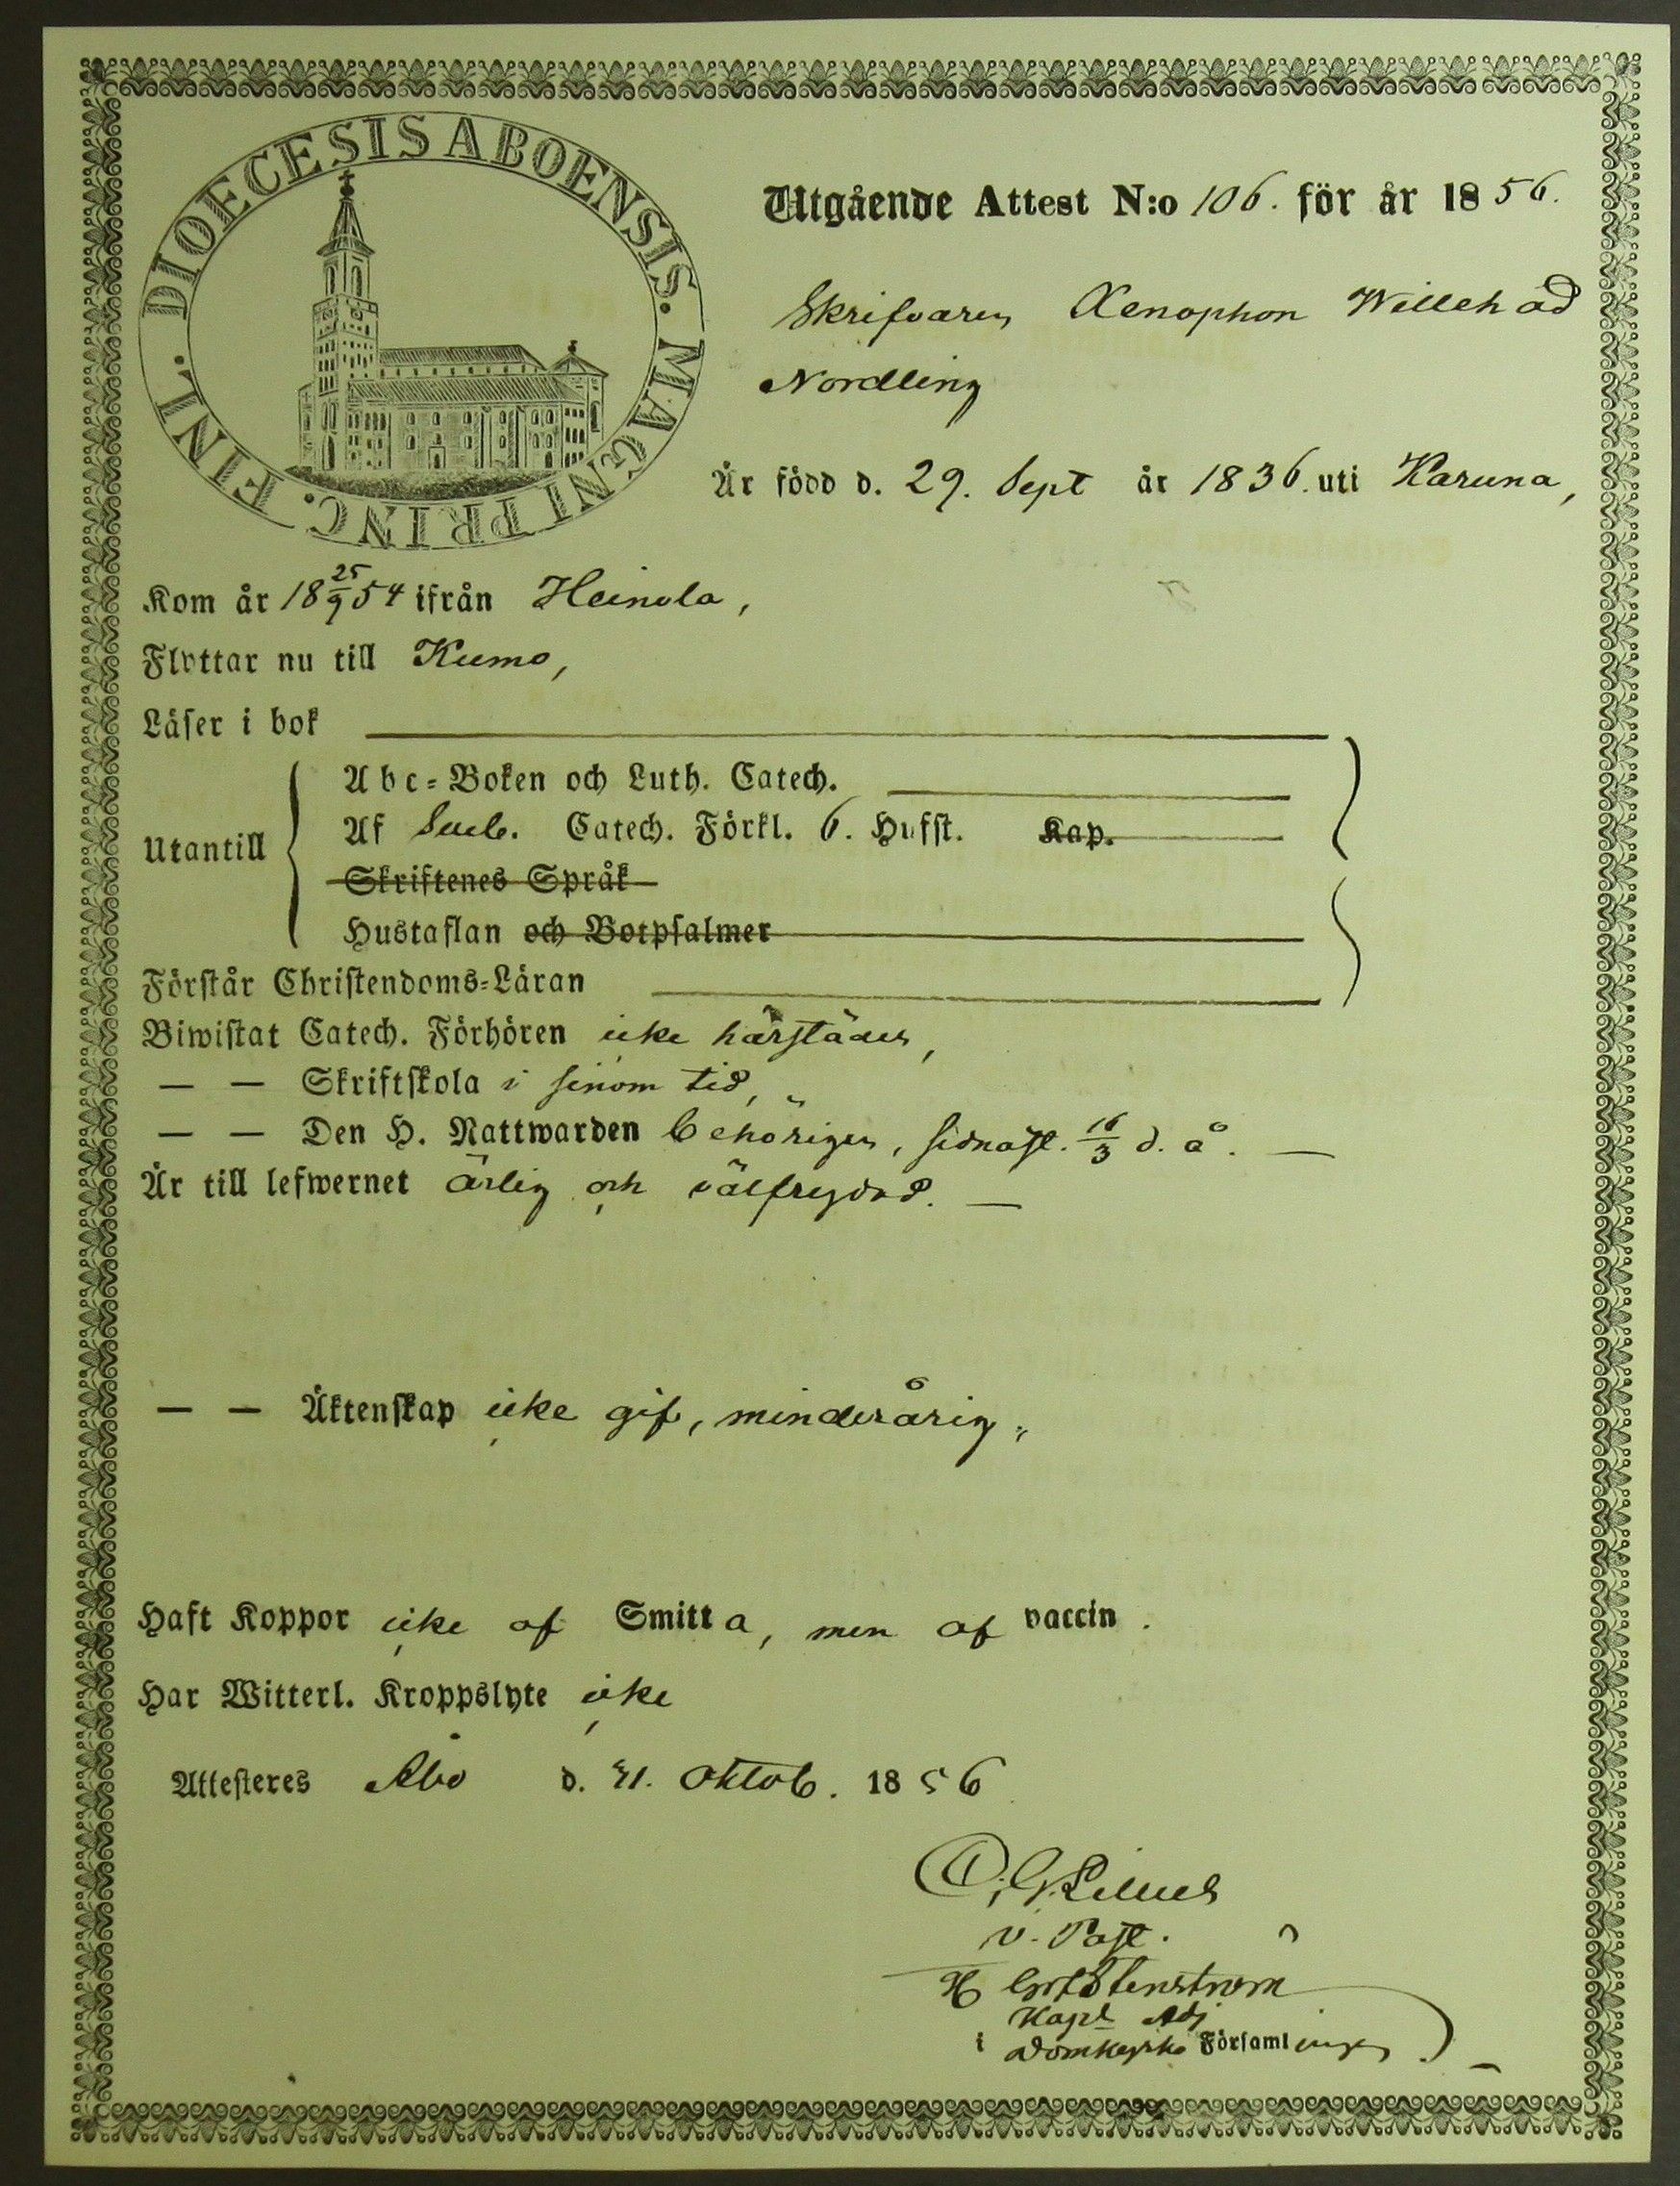 DIOECESIS ABOENSIS. MAGNI PRINC. FINL.
Utgående Attest N:o 106. för år 1856.
Skrifvaren Xenophon Willehad
Nordling
Är född d. 29. Sept år 1836. uti Karuna,
Kom år 18 25/9 54 ifrån Heinola,
Flyttar nu till Kumo,
Läser i bok
Utantill
Abc-Boken och Luth. Catech.
Af Sveb. Catech. Förkl. 6. Hufst. Kap.
Skriftenes Språk
Hustaflan och Botpsalmer
Förstår Christendoms-Läran
Biwistat Catech. Förhören icke härstädes,
— — Skriftskola i sinom tid,
— — Den H. Nattwarden behörigen, sidnast. 16/3 d. å. —
Är till lefwernet ärlig och välfrejdad. —
— — Äktenskap icke gift, minderårig,
Haft Koppor icke af Smitta, men af vaccin.
Har Witterl. Kroppslyte icke
Attesteres Åbo d. 31. Oktob. 1856
v. Past.
Stenström
Kapl Adj
i Domkyrko Församlingen